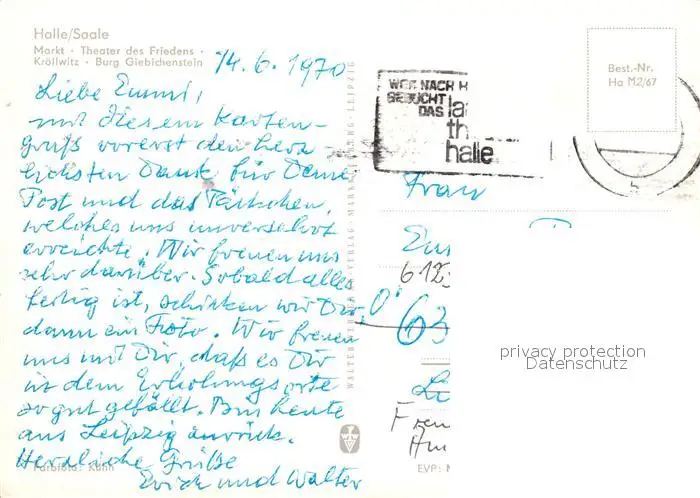 Halle/Saale
Markt · Theater des Friedens ·
Kröllwitz · Burg Giebichenstein
14.6.1970
Liebe Emmi,
mit diesem Karten-
gruß vorerst den herz-
lichsten Dank für Deine
Post und das Päckchen,
welches uns unversehrt
erreichte. Wir freuen uns
sehr darüber. Sobald alles
fertig ist, schicken wir Dir
dann ein Foto. Wir freuen
uns mit Dir, daß es Dir
in dem Erholungsorte
so gut gefällt. Bin heute
aus Leipzig zurück.
Herzliche Grüße
Erich und Walter
Farbfoto: Kühn
WER NACH H
BESUCHT
DAS la
th
halle
Best.-Nr.
Ha M2/67
Frau
612
63
privacy protection
Datenschutz
EVP: M